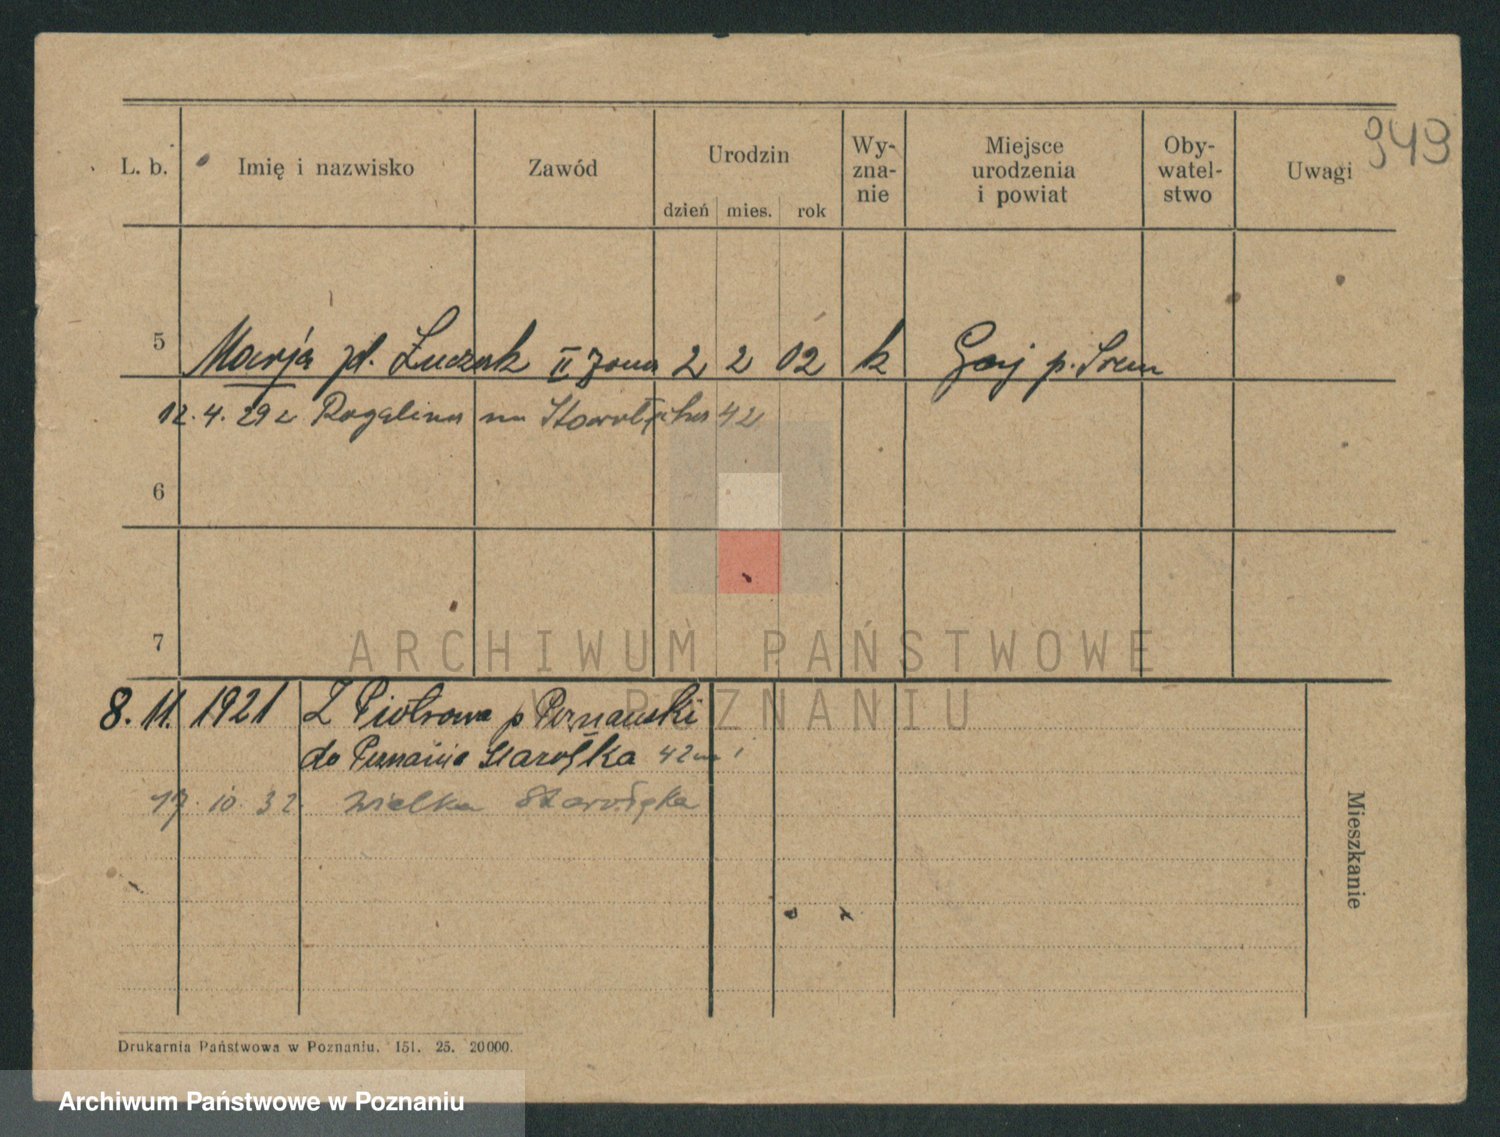 949
L. b. Imię i nazwisko Zawód Urodzin Wy-zna-nie Miejsce urodzenia i powiat Oby-watel-stwo Uwagi
dzień mies. rok
5 Marja zd. Łuczak II żona 2 2 02 k Gaj p. Śrem
12. 4. 29 z Rogalina na Starołęka 42
6
7
ARCHIWUM PAŃSTWOWE
W POZNANIU
8. 11. 1921 Z Piotrowa p Poznański
do Poznania Starołka 42
17. 10. 32 Wielka Starołęka
Mieszkanie
Drukarnia Państwowa w Poznaniu. 151. 25. 20000.
Archiwum Państwowe w Poznaniu